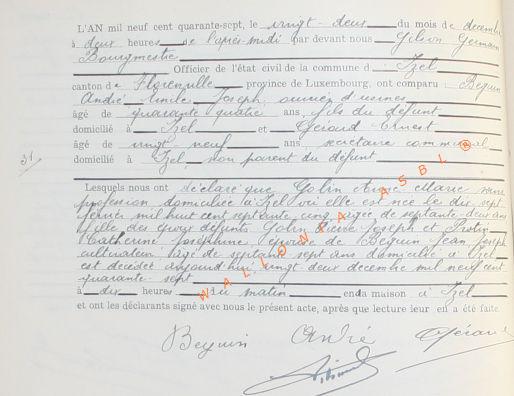 L'AN mil neuf cent quarante-sept, le vingt-deux du mois de décembre
à deux heures de l'après-midi par devant nous Gilson Germain
Bourgmestre
Officier de l'état civil de la commune d Izel
canton de Florenville province de Luxembourg, ont comparu : Bequin
André Emile Joseph, ouvrier d'usines
âgé de quarante quatre ans, fils du défunt
domicilié à Izel et Gérard Ernest
âgé de vingt neuf ans secrétaire communal
domicilié à Izel, non parent du défunt
31
Lesquels nous ont déclaré que Golin Anne Marie sans
profession domiciliée à Izel où elle est née le dix sept
février mil huit cent septante cinq, âgée de septante deux ans
fille des époux défunts Golin Pierre Joseph et
Catherine Joséphine épouse de Bequin Jean Joseph
cultivateur âgé de septante sept ans domicilié à Izel
est décédée aujourd'hui vingt deux décembre mil neuf cent
quarante-sept
à dix heures du matin en sa maison à Izel
et ont les déclarants signé avec nous le présent acte, après que lecture leur en a été faite
Bequin André Gérard
WALLONIA ASBL ®